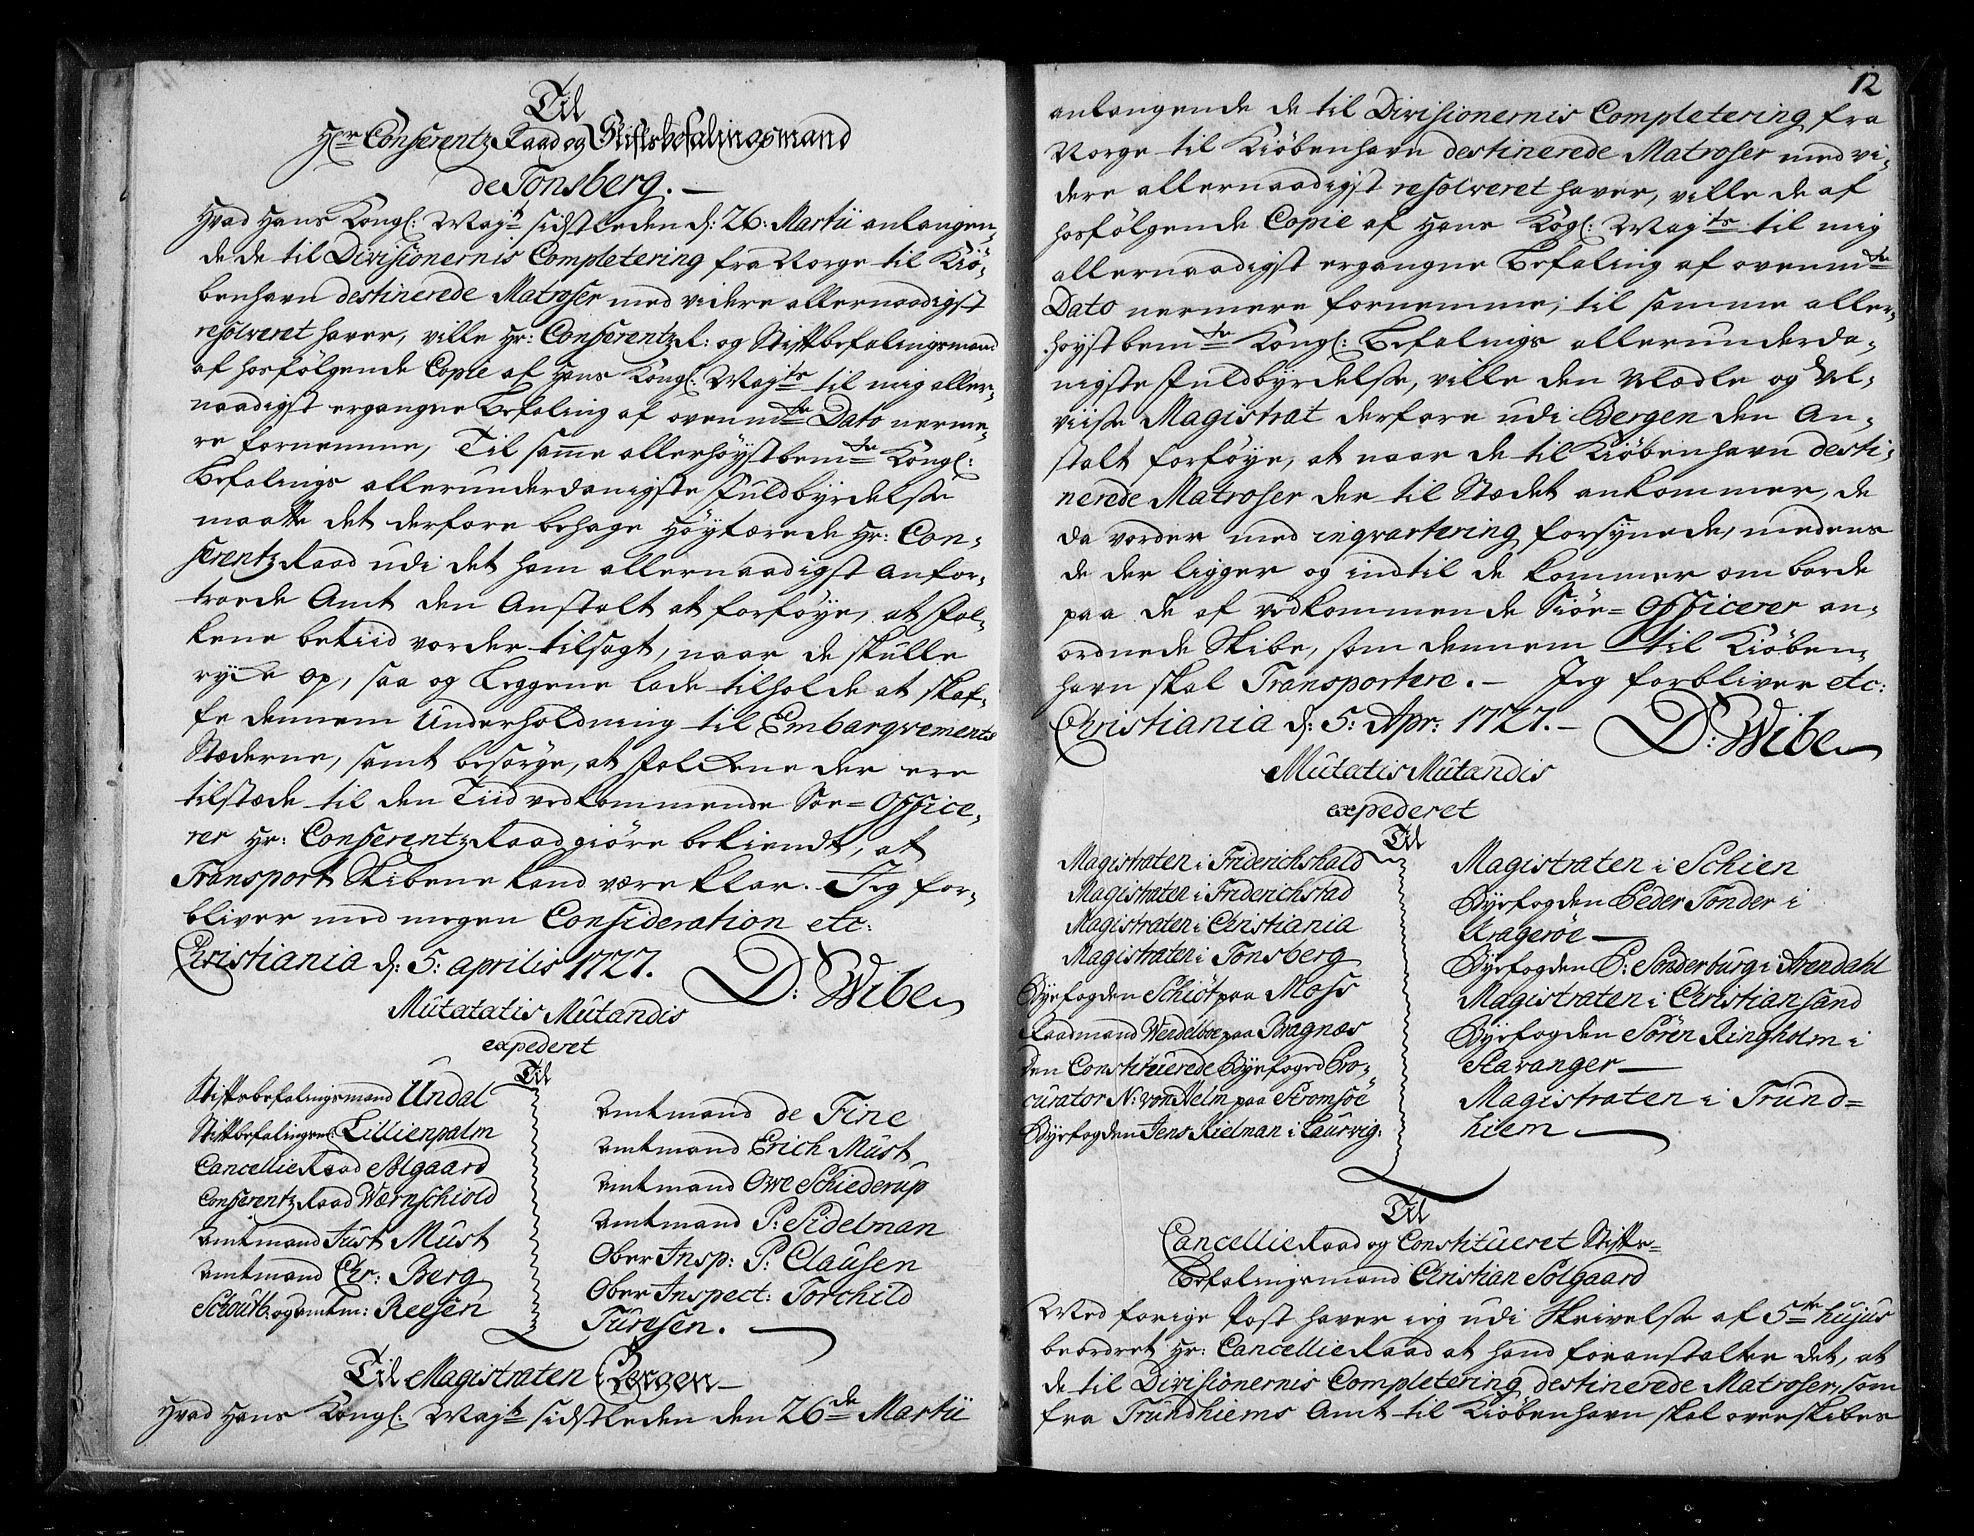 Til
Hr Conferentz Raad og Stiftsbefalingsmand
de Tonsberg. —
Hvad Hans Kongl: Mayts sidstleden d: 26. Martii anlangen-
de de til Divisionernis Completering fra Norge til Kiö-
benhavn destinerede Matroser med videre allernaadigst
resolveret haver, ville Hr: Conferentz R: og Stiftbefalingsmand
af hosfölgende Copie af Hans Kongl: Mayts til mig aller-
naadigst ergangne Befaling af ovenmte Dato nerme-
re fornemme, Til samme allerhöystbemte Kongl:
Befalings allerunderdanigste Fuldbyrdelse
maatte det derfore behage Höytærede Hr: Con-
ferentz Raad udi det ham allernaadigst anfor-
troede Amt den Anstalt at forföye, at Fol-
kene betiid vorder tilsagt, naar de skulle
rycke op, saa og Leggene lade tilholde at skaf-
fe dennem Underholdning til Embarqvements
Stæderne, samt besörge, at Folckene der ere
tilstæde til den Tiid vedkommende Söe-Office-
rer Hr: Conferentz Raad giöre bekiendt, at
Transport Skibene kand være klar. Jeg for-
bliver med megen Consideration etc:
Christiania d: 5: aprilis 1727. D: Wibe
Mutatatis Mutandis
expederet
Til
Stiftsbefalingsmand Undal
Stiftbefalingsm: Lillienpalm
Cancellie Raad Solgaard
Conferentz Raad Wærnschiold
Amtmand Just Must
Amtmand Chr: Berg
Schoutb: og Amtm: Reesen
Amtmand de Fine
Amtmand Erich Must
Amtmand Owe Schiederup
Amtmand P: Sidelman
Ober Insp: P: Clausen
Ober Inspect: Torchild
Turesen. —
Til Magistraten i Bergen —
Hvad Hans Kongl: Mayts sidstleden den 26de Martii
12
anlangende de til Divisionernis Completering fra
Norge til Kiöbenhavn destinerede Matroser med vi-
dere allernaadigst resolveret haver, ville de af
hosfölgende Copie af Hans Kogl: Mayts til mig
allernaadigst ergangne Befaling af ovenmte
Dato nermere fornemme; til samme aller-
höystbemte Kongl: Befalings allerunderda-
nigste Fuldbyrdelse, ville den Velædle og Vel-
viise Magistrat derfore udi Bergen den An-
stalt forföye, at naar de til Kiöbenhavn desti-
nerede Matroser der til Stædet ankommer, de
da vorder med inqvartering forsynede, medens
de der ligger og indtil de kommer om borde
paa de af vedkommende Siöe-Officerer an-
ordnede Skibe, som dennem til Kiöben-
havn skal Transportere. — Jeg forbliver etc:
Christiania d: 5: Apr: 1727. — D: Wibe
Mutatis Mutandis
expederet
Til
Magistraten i Friderichshald
Magistraten i Friderichstad
Magistraten i Christiania
Magistraten i Tonsberg
Byefogden Schiöt paa Moss
Raadmand Wendelboe paa Bragnæs
Den Constituerede Byefoged Pro-
curator N: von Helm paa Stromsöe
Byefogden Jens Kielman i Laurvig:
Magistraten i Schien
Byefogden Peder Tonder i
Krageröe —
Byefogden P: Sonderburg i Arendahl
Magistraten i Christiansand
Byefogden Sören Ringholm i
Stavanger —
Magistraten i Trund=
hiem —
Til
Cancellie Raad og Constitueret Stifts=
Befalingsmand Christian Solgaard
Med forige Post haver ieg udi Skrivelse af 5te hujus
beordret Hr: Cancellie Raad at hand foranstalter det, at
de til Divisionernis Completering destinerede Matroser, som
fra Trundhiems Amt til Kiöbenhavn skal overskibes